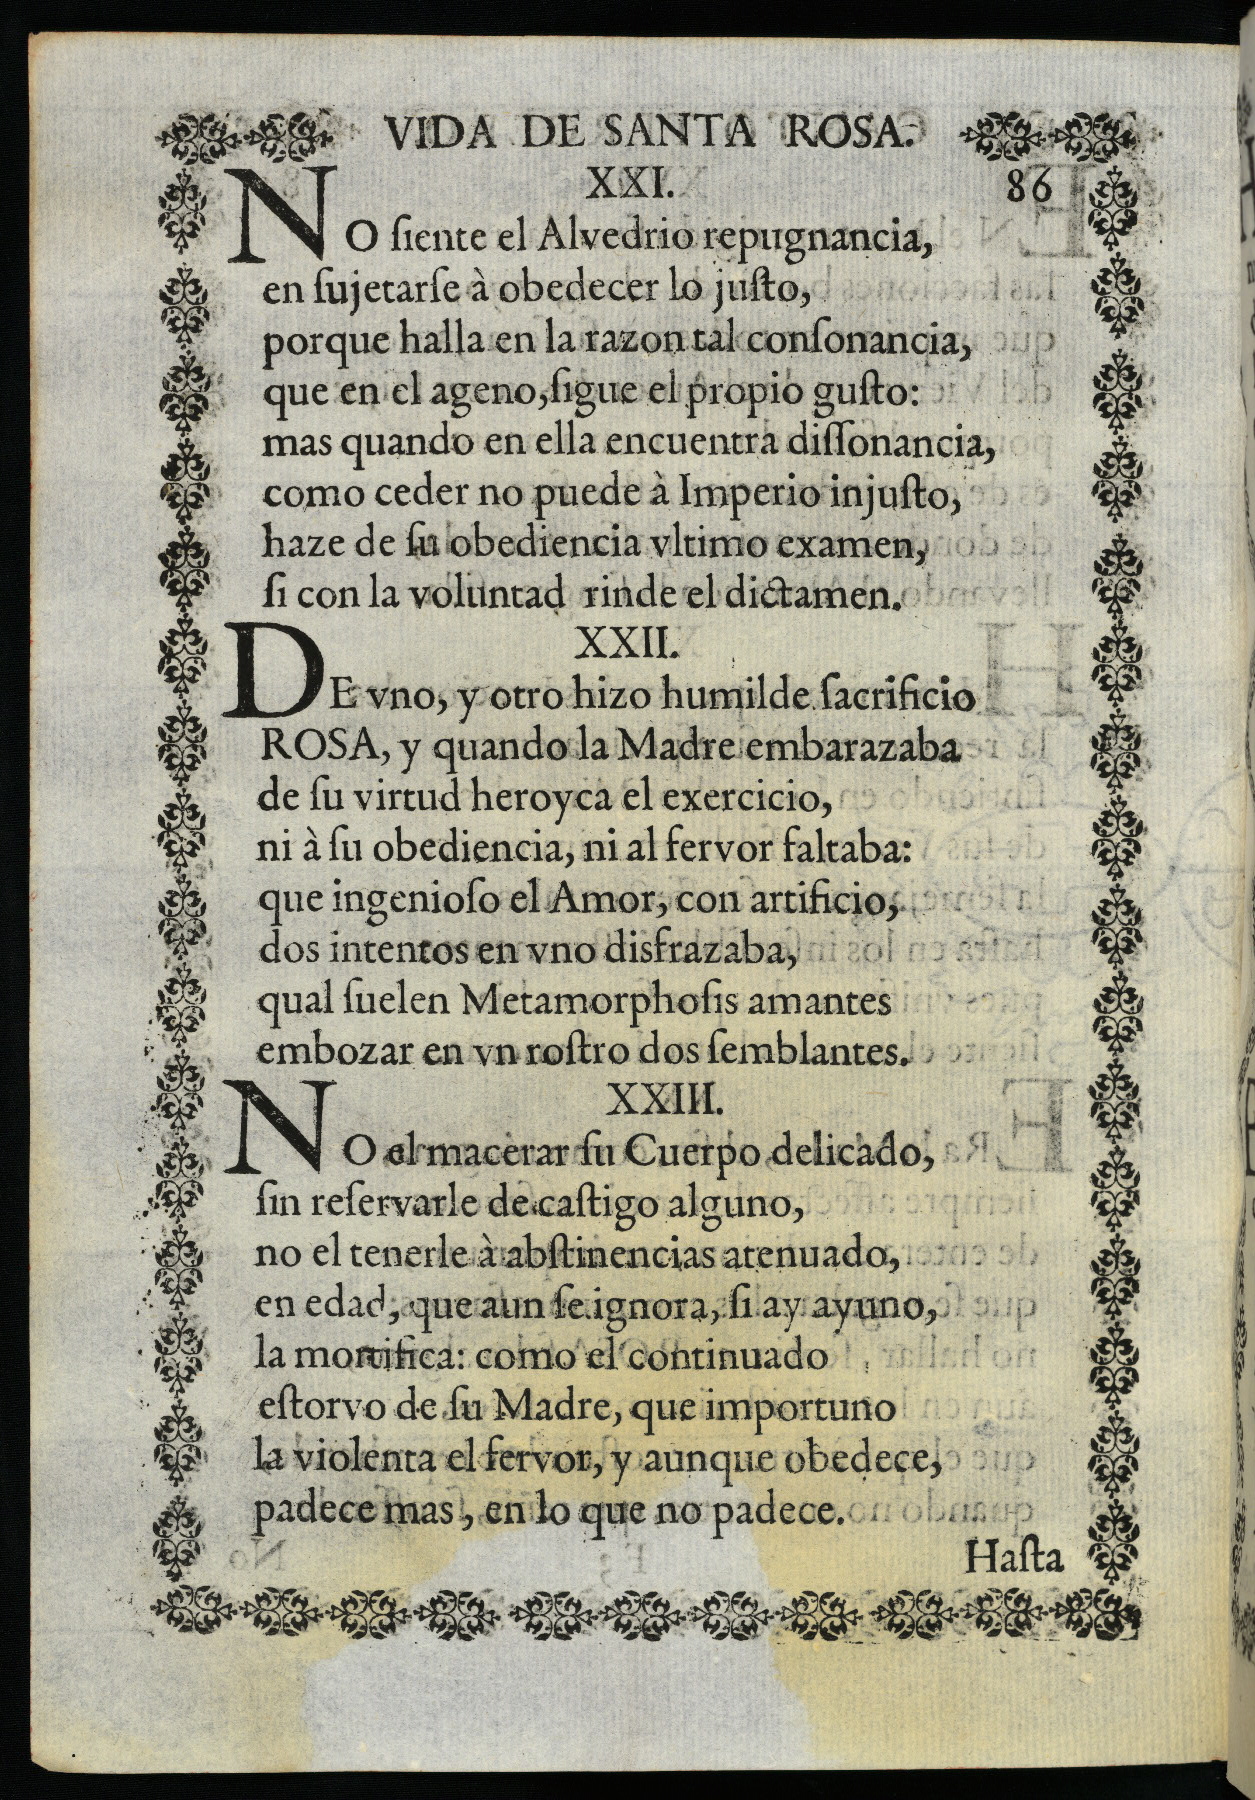 VIDA DE SANTA ROSA.
XXI. 86
NO ſiente el Alvedrio repugnancia,
en ſujetarſe à obedecer lo juſto,
porque halla en la razon tal conſonancia,
que en el ageno, ſigue el propio guſto:
mas quando en ella encuentra diſſonancia,
como ceder no puede à Imperio injuſto,
haze de ſu obediencia vltimo examen,
ſi con la voluntad rinde el dictamen.
XXII.
DE vno, y otro hizo humilde ſacrificio
ROSA, y quando la Madre embarazaba
de ſu virtud heroyca el exercicio,
ni à ſu obediencia, ni al fervor faltaba:
que ingenioſo el Amor, con artificio,
dos intentos en vno disfrazaba,
qual ſuelen Metamorphoſis amantes
embozar en vn roſtro dos ſemblantes.
XXIII.
NO el macerar ſu Cuerpo delicado,
ſin reſervarle de caſtigo alguno,
no el tenerle à abſtinencias atenuado,
en edad, que aun ſe ignora, ſi ay ayuno,
la mortifica: como el continuado
eſtorvo de ſu Madre, que importuno
la violenta el fervor, y aunque obedece,
padece mas, en lo que no padece.
Haſta